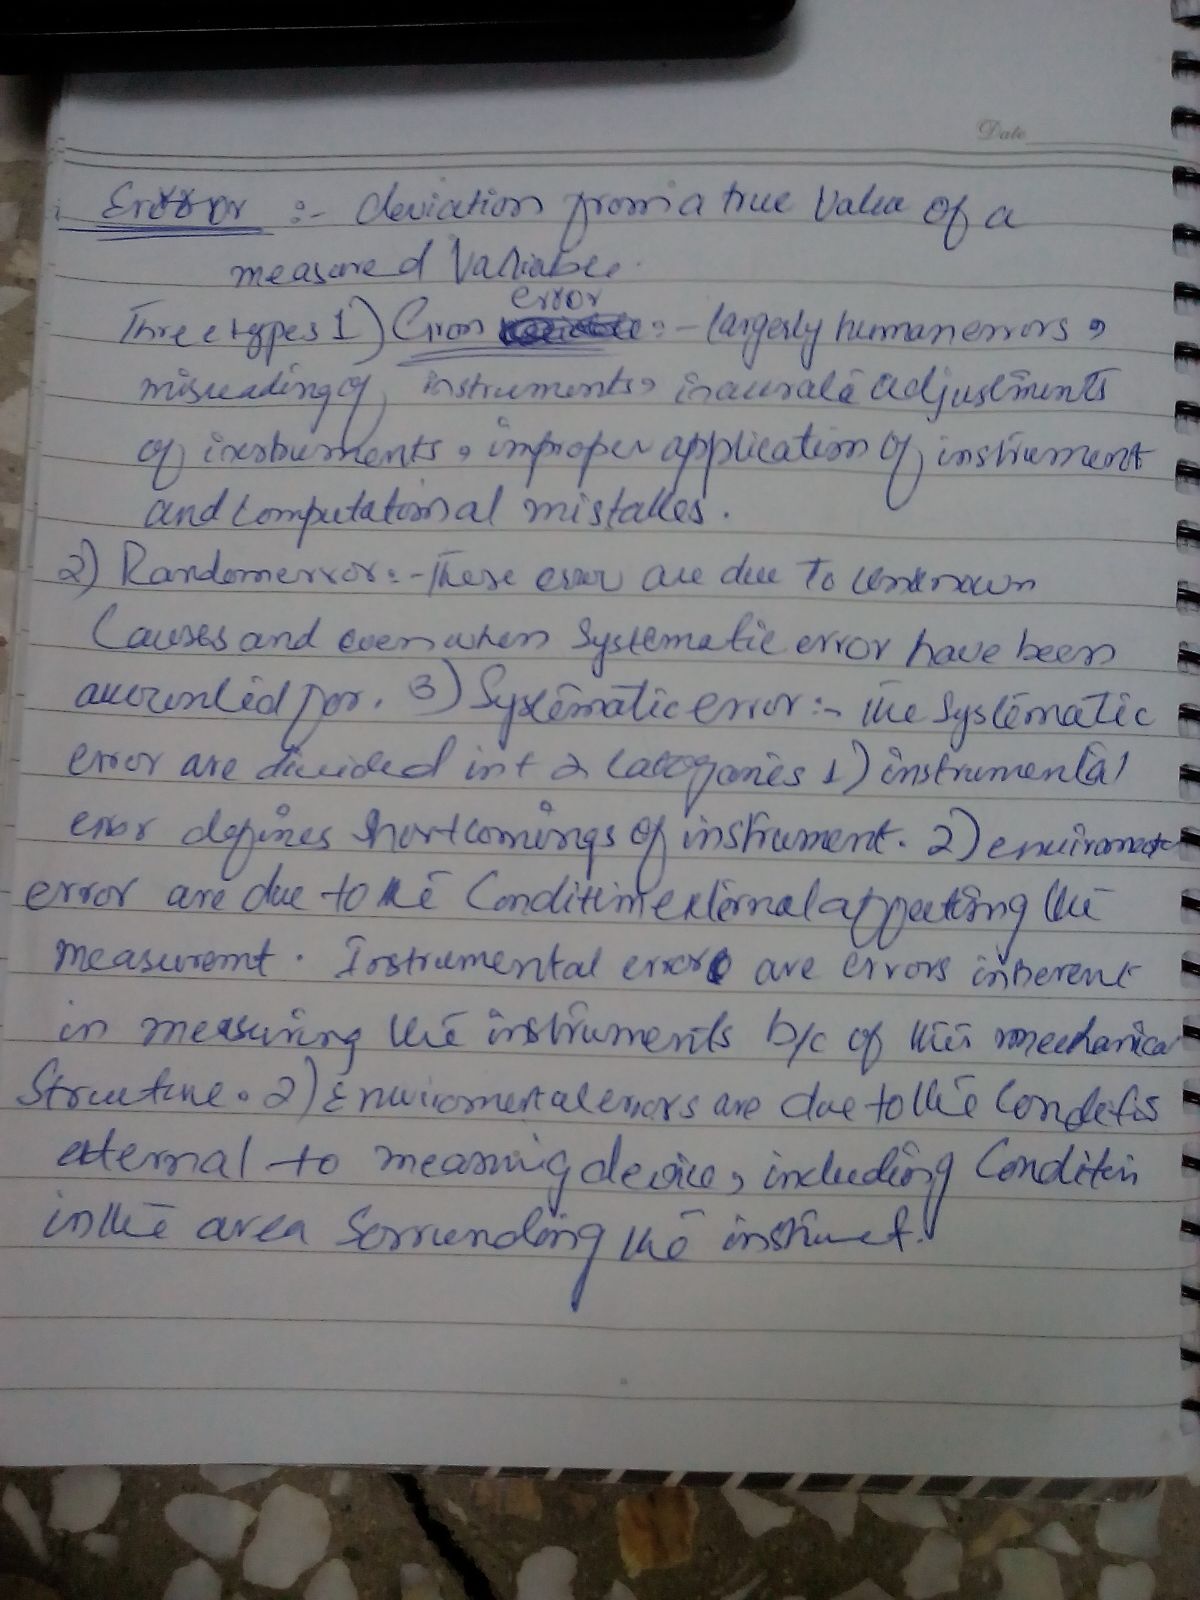 Date
Error :- deviation from a true Value of a
measured Variable.
error
Three types 1) Gross :- largerly human errors,
misreading of instruments, inaurate adjustments
of instruments, improper application of instrument
and computational mistakes.
2) Random error :- These error are due to unknown
Causes and even when Systematic error have been
accounted for. 3) Systematic error :- the Systematic
error are divided int 2 Catogories 1) instrumental
error defines Shortcomings of instrument. 2)
error are due to the Condition external affecting the
measuremt. Instrumental error are errors inherent
in measuring the instruments b/c of their mechanical
Structure. 2) Enviromental errors are due to the
external to measuring device, including Condition
in the area Sorrunding the